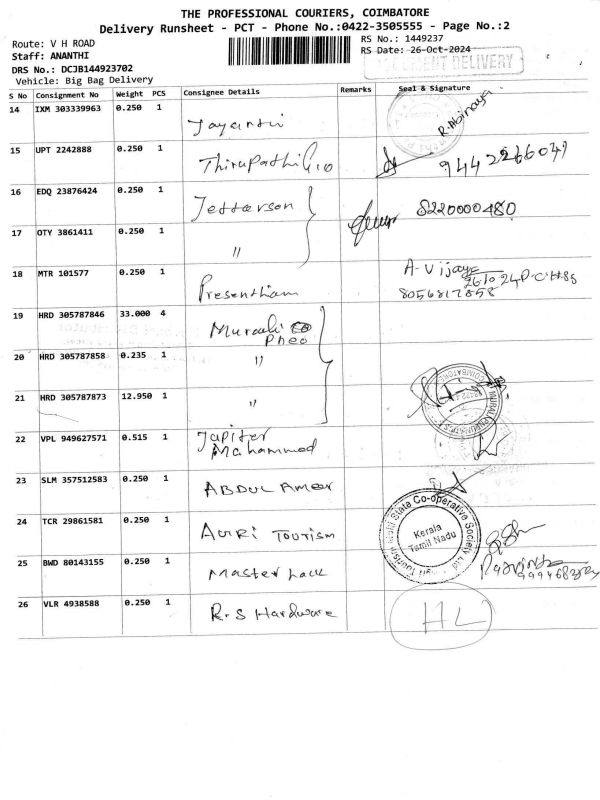 THE PROFESSIONAL COURIERS, COIMBATORE
Delivery Runsheet - PCT - Phone No.:0422-3505555 - Page No.:2
Route: V H ROAD
Staff: ANANTHI
DRS No.: DCJB144923702
Vehicle: Big Bag Delivery
RS No.: 1449237
RS Date: 26-Oct-2024
DELIVERY
S No Consignment No Weight PCS Consignee Details Remarks Seal & Signature
14 IXM 303339963 0.250 1 Jayanthi R. Abinaya
15 UPT 2242888 0.250 1 Thirupathi 9442266049
16 EDQ 23876424 0.250 1 Jefferson 8220000480
17 OTY 3861411 0.250 1 "
18 MTR 101577 0.250 1 Presentham A-Vijaya
8056817858
19 HRD 305787846 33.000 4 Murali
Pneo
20 HRD 305787858 0.235 1 "
21 HRD 305787873 12.950 1 "
COIMBATORE
22 VPL 949627571 0.515 1 Jupiter
Mahammed
23 SLM 357512583 0.250 1 ABDUL Ameer
24 TCR 29861581 0.250 1 AURI Tourism
Multi State Co-operative Society Ltd
Kerala
Tamil Nadu
25 BWD 80143155 0.250 1 Master Lack
26 VLR 4938588 0.250 1 R.S Hardware HL